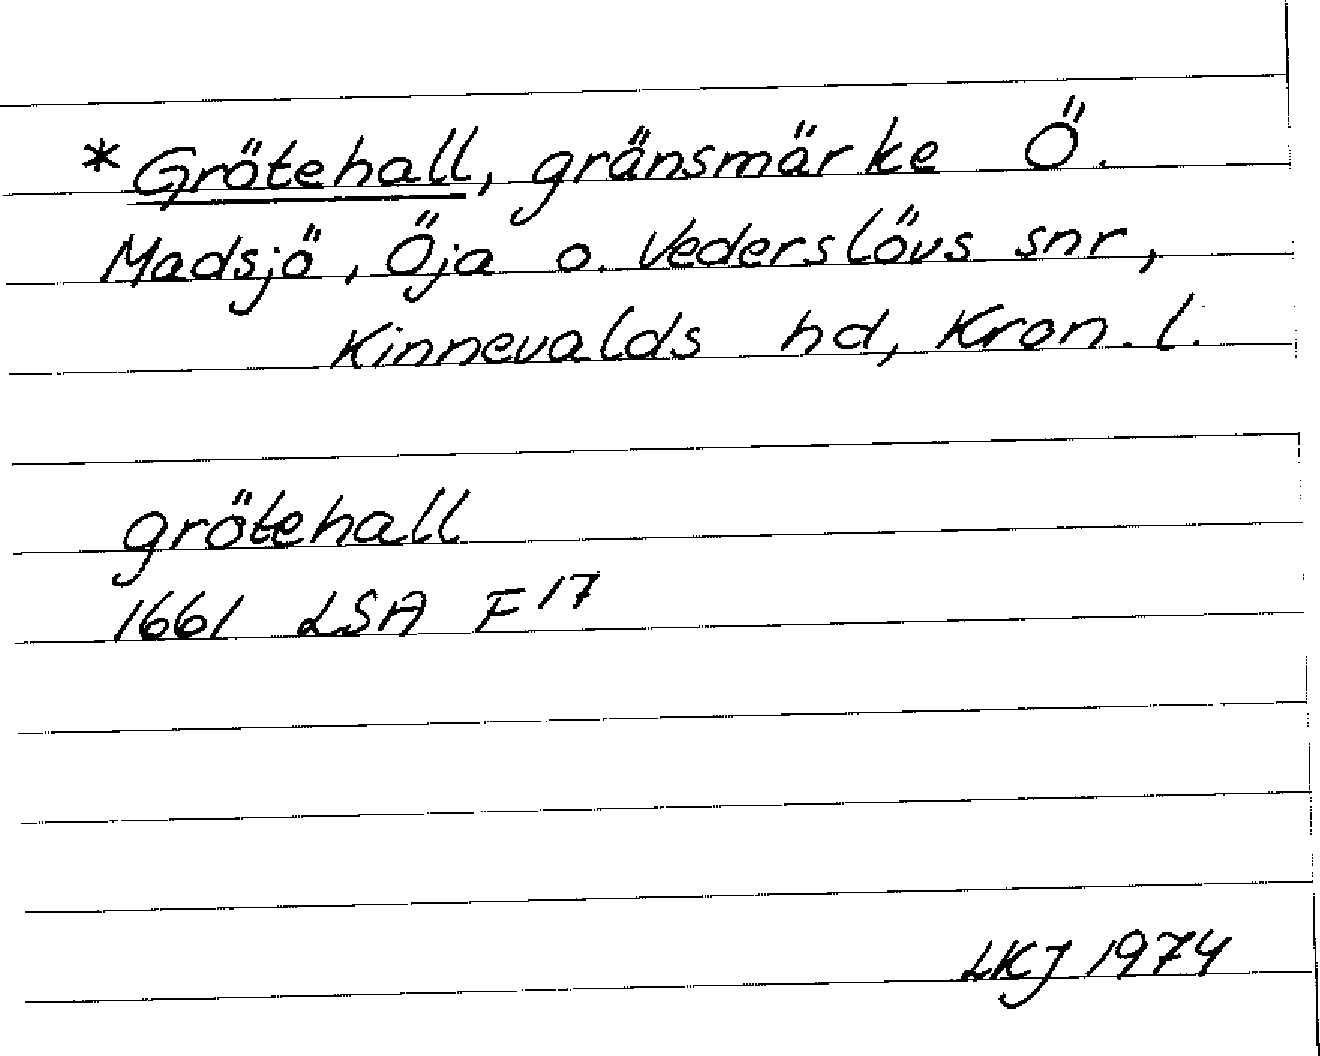 *Grötehall, gränsmärke Ö.
Madsjö, Öja o. Vederslövs snr,
Kinnevalds hd, Kron. l.
grötehall
1661 LSA F 17
LKJ 1974